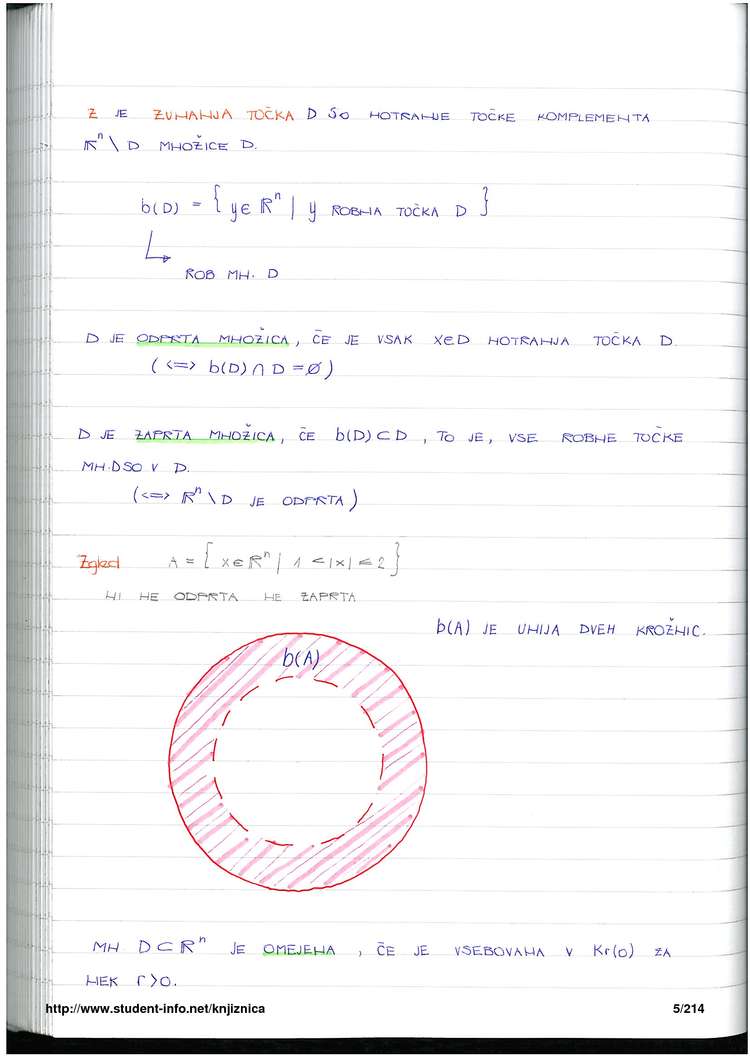 Z JE ZUNANJA TOČKA D SO NOTRANJE TOČKE KOMPLEMENTA
ℝⁿ \ D MNOŽICE D.
b(D) = { y ∈ ℝⁿ | y ROBNA TOČKA D }
ROB MN. D
D JE ODPRTA MNOŽICA, ČE JE VSAK X∈D NOTRANJA TOČKA D.
(<=> b(D) ∩ D = ∅)
D JE ZAPRTA MNOŽICA, ČE b(D) ⊂ D, TO JE, VSE ROBNE TOČKE
MN. D SO V D.
(<=> ℝⁿ \ D JE ODPRTA)
Zgled A = { x ∈ ℝⁿ | 1 < |x| ≤ 2 }
NI NE ODPRTA NE ZAPRTA
b(A) JE UNIJA DVEH KROŽNIC.
b(A)
MN D ⊂ ℝⁿ JE OMEJENA, ČE JE VSEBOVANA V Kr(0) ZA
NEK r>0.
http://www.student-info.net/knjiznica 5/214